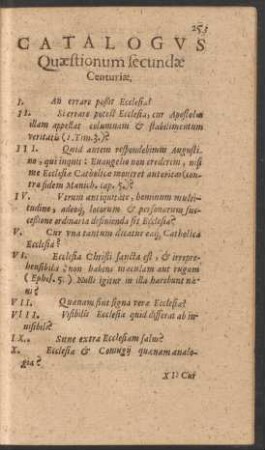 253
CATALOGVS
Quæstionum secundæ
Centuriæ.
I. An errare possit Ecclesia?
II. Si errare potest Ecclesia, cur Apostolus
illam appellat columnam & stabilimentum
veritatis (1. Tim. 3.)?
III. Quid autem respondebimus Augusti-
no, qui inquit: Euangelio non crederem, nisi
me Ecclesiæ Catholicæ moueret autoritas (con-
tra Epistolam Manich. cap. 5.)?
IV. Vtrum antiquitate, hominum multi-
tudine, adeoq́; locorum & personarum suc-
cessione ordinaria definienda sit Ecclesia?
V. Cur vna tantum dicatur eaq́; Catholica
Ecclesia?
VI. Ecclesia Christi sancta est, & irrepre-
hensibilis, non habens maculam aut rugam
(Ephes. 5.) Nulli igitur in illa hærebunt næ-
ui?
VII. Quænam sint signa veræ Ecclesiæ?
VIII. Visibilis Ecclesia quid differat ab in-
uisibili?
IX. Sitne extra Ecclesiam salus?
X. Ecclesiæ & Coniugij quænam analo-
gia?
XI. Cur